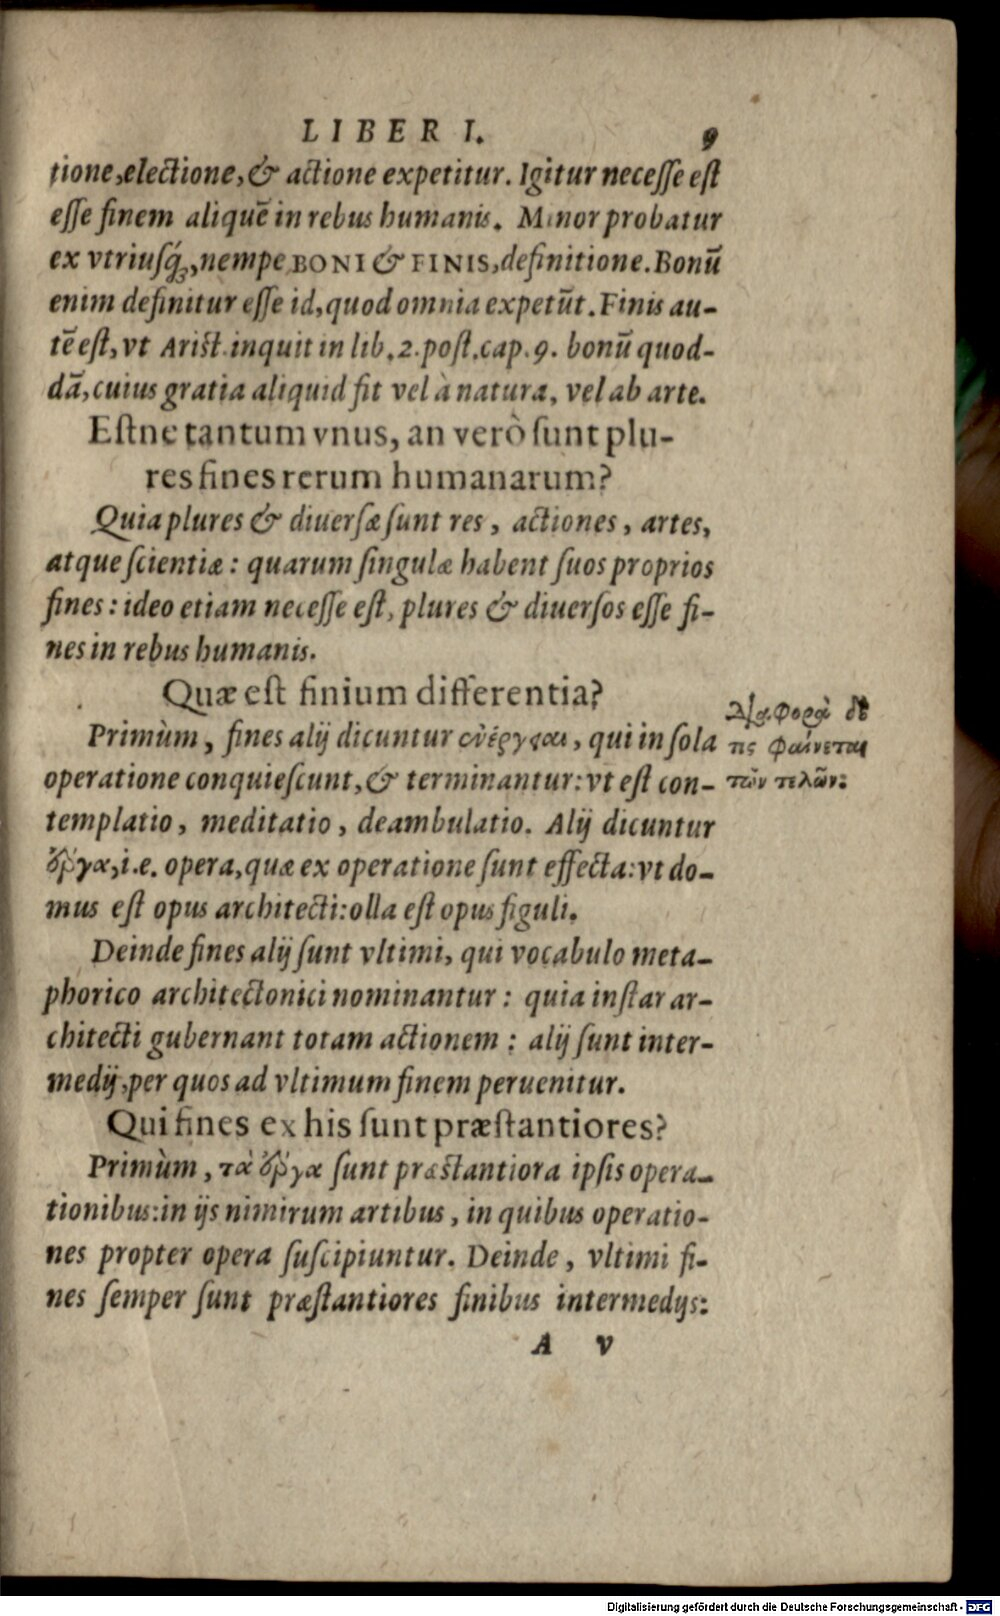 LIBER I. 9
tione, electione, & actione expetitur. Igitur necesse est
esse finem aliquē in rebus humanis. Minor probatur
ex vtriusq́;, nempe BONI & FINIS, definitione. Bonū
enim definitur esse id, quod omnia expetūt. Finis au-
tē est, vt Arist. inquit in lib. 2. post. cap. 9. bonū quod-
dā, cuius gratia aliquid fit vel à natura, vel ab arte.
Estne tantum vnus, an verò sunt plu-
res fines rerum humanarum?
Quia plures & diuersæ sunt res, actiones, artes,
atque scientiæ: quarum singulæ habent suos proprios
fines: ideo etiam necesse est, plures & diuersos esse fi-
nes in rebus humanis.
Quæ est finium differentia?
Διαφορὰ δέ
τις φαίνεται
τῶν τελῶν:
Primùm, fines alij dicuntur ἐνέργειαι, qui in sola
operatione conquiescunt, & terminantur: vt est con-
templatio, meditatio, deambulatio. Alij dicuntur
ἔργα, i.e. opera, quæ ex operatione sunt effecta: vt do-
mus est opus architecti: olla est opus figuli.
Deinde fines alij sunt vltimi, qui vocabulo meta-
phorico architectonici nominantur: quia instar ar-
chitecti gubernant totam actionem: alij sunt inter-
medij, per quos ad vltimum finem peruenitur.
Qui fines ex his sunt præstantiores?
Primùm, τὰ ἔργα sunt præstantiora ipsis opera-
tionibus: in ijs nimirum artibus, in quibus operatio-
nes propter opera suscipiuntur. Deinde, vltimi fi-
nes semper sunt præstantiores finibus intermedijs:
A v
Digitalisierung gefördert durch die Deutsche Forschungsgemeinschaft - DFG